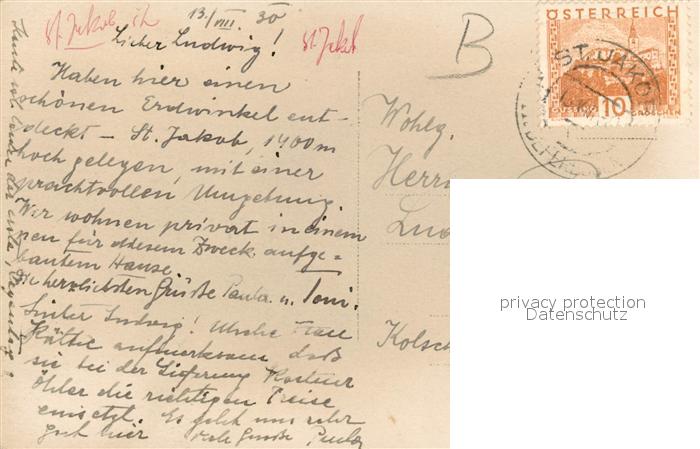 St. Jakob ich
13./VIII. 30
Lieber Ludwig!
St. Jakob
Haben hier einen
schönen Erdwinkel ent-
deckt - St. Jakob, 1400 m
hoch gelegen, mit einer
prachtvollen Umgebung.
Wir wohnen privat in einem
neu für diesem Zweck aufge=
bautem Hause.
Die herzliebsten Grüße Paula u. Toni.
Lieber Ludwig!
Käthe aufmerksam daß
sie bei der Lieferung
die richtigen Preise
einsetzt. Es geht uns sehr
gut hier
viele Grüße Paula
Heute ist leider der erste Regentag!
B
ÖSTERREICH
10
GROSCHEN
ST. JAKOB
Wohlg.
Herrn
Lud
Kolsch
privacy protection
Datenschutz